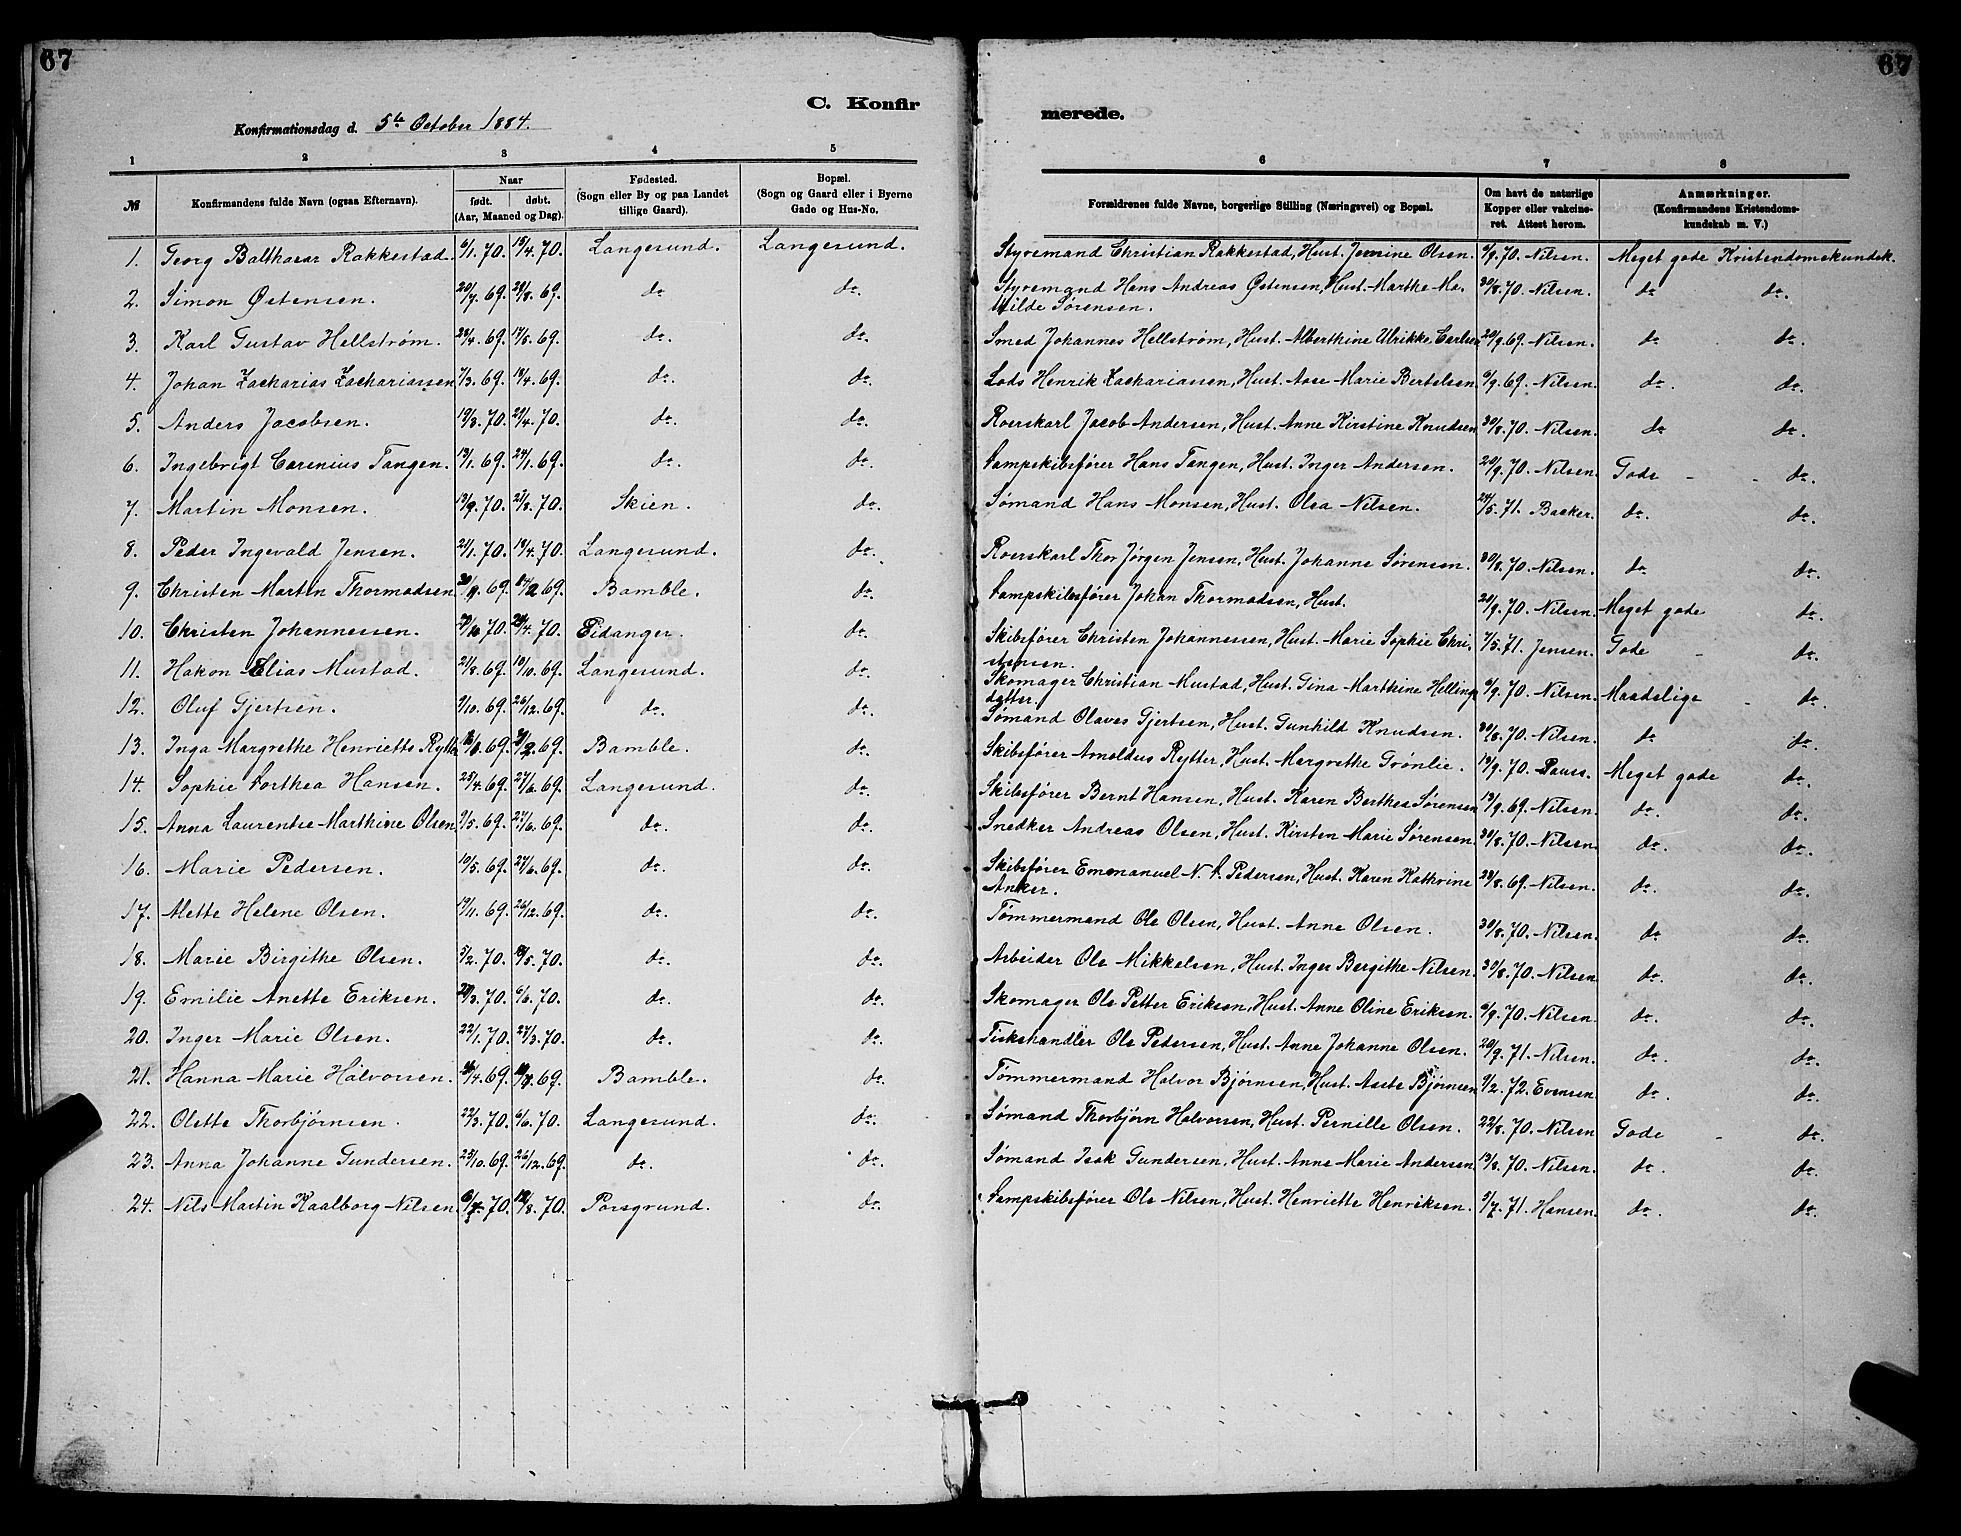 67
67
C. Konfir
merede.
Konfirmationsdag d. 5te October 1884.
1 2 3 4 5 6 7 8
№ Konfirmandens fulde Navn (ogsaa Efternavn). Naar født. døbt. (Aar, Maaned og Dag). Fødested. (Sogn eller By og paa Landet tillige Gaard). Bopæl. (Sogn og Gaard eller i Byerne Gade og Hus-No. Forældrenes fulde Navne, borgerlige Stilling (Næringsvei) og Bopæl. Om havt de naturlige Kopper eller vakcineret. Attest herom. Anmærkninger. (Konfirmandens Kristendomskundskab m. V.)
1. Georg Balthasar Rakkestad. 6/1.70. 18/4.70. Langesund. Langesund. Styrmand Christian Rakkestad, Hust. Jensine Olsen. 6/9.70. Nilsen. Meget gode Kristendomskundsk.
2. Simon Østensen. 20/7.69. 29/8.69. do. do. Styrmand Hans Andreas Østensen, Hust. Marthe Mathilde Sørensen. 30/8.70. Nilsen. do do.
3. Karl Gustav Hellstrøm. 23/4.69. 17/5.69. do. do. Smed Johannes Hellstrøm, Hust. Alberthine Ulrikke Carlsen 20/9.69. Nilsen. do do.
4. Johan Zacharias Zachariassen 7/3.69. 18/4.69. do. do. Lods Henrik Zachariassen, Hust. Aase Marie Bertelsen. 6/9.69. Nilsen. do. do.
5. Anders Jacobsen. 19/3.70. 29/4.70. do. do. Roerskarl Jacob Andersen, Hust. Anne Kirstine Knudsen 30/8.70. Nilsen. do do.
6. Ingebrigt Carenius Tangen. 13/1.69. 24/1.69. do. do. Dampskibsfører Hans Tangen, Hust. Inger Andersen. 20/9.70. Nilsen. Gode - - do.
7. Martin Monsen. 13/9.70. 21/8.70. Skien. do. Sømand Hans Monsen, Hust. Olea Nilsen. 24/5.71. Backer. do. do.
8. Peder Ingevald Jensen. 21/1.70. 18/4.70. Langesund. do. Roerskarl Thor Jørgen Jensen, Hust. Johanne Sørensen. 30/8.70. Nilsen. do do.
9. Christen Martin Thormodsen. 69. 69. Bamble. do. Dampskibsfører Johan Thormodsen, Hust. 20/9.70. Nilsen. Meget gode do.
10. Christen Johannessen. 70. 70. Eidanger. do. Skibsfører Christen Johannessen, Hust. Marie Sophie Christensen. 7/5.71. Jensen. Gode - do.
11. Hakon Elias Mustad. 21/8.69. 10/10.69. Langesund. do. Skomager Christian Mustad, Hust. Gina Marthine Hellingsdatter. 6/9.70. Nilsen. Maadelige - do.
12. Oluf Gjertsen. 9/10.69. 26/12.69. do. do. Sømand Olaves Gjertsen, Hust. Gunhild Knudsen. 30/8.70. Nilsen. do do.
13. Inga Margrethe Henriette Rytter 69. 69. Bamble. do. Skibsfører Arnoldus Rytter, Hust. Margrethe Grønlie. 19/9.70. Pauss. Meget gode do.
14. Sophie Dorthea Hansen. 25/4.69. 27/6.69. Langesund. do. Skibsfører Bernt Hansen, Hust. Karen Berthea Sørensen 13/9.69. Nilsen. do. do.
15. Anna Laurentse Marthine Olsen 9/5.69. 27/6.69. do. do. Snedker Andreas Olsen, Hust. Kirsten Marie Sørensen. 30/8.70. Nilsen. do. do.
16. Marie Pedersen. 10/5.69. 27/6.69. do. do. Skibsfører Emmanuel N. Pedersen, Hust. Karen Kathrine Anker. 23/8.69. Nilsen. do. do.
17. Mette Helene Olsen. 19/11.69. 26/12.69. do. do. Tømmermand Ole Olsen, Hust. Anne Olsen. 30/8.70. Nilsen. do do.
18. Marie Birgithe Olsen. 5/2.70. 70. do. do. Arbeider Ole Mikkelsen, Hust. Inger Bergithe Nilsen. 30/8.70. Nilsen. do. do.
19. Emilie Anette Eriksen. 70. 6/6.70. do. do. Skomager Ole Petter Eriksen, Hust. Anne Oline Eriksen. 6/9.70. Nilsen. do. do.
20. Inger Marie Olsen. 22/1.70. 27/3.70. do. do. Fiskehandler Ole Pedersen, Hust. Anne Johanne Olsen. 20/9.71. Nilsen. do. do.
21. Hanna Marie Halvorsen. 69. 69. Bamble. do. Tømmermand Halvor Bjørnsen, Hust. Aaste Bjørnsen 9/2.72. Evensen do. do.
22. Olette Thorbjørnsen. 22/3.70. 6/6.70. Langesund. do. Sømand Thorbjørn Halvorsen, Hust. Pernille Olsen. 22/8.70. Nilsen Gode - do.
23. Anna Johanne Gundersen. 25/10.69. 26/12.69. do. do. Sømand Isak Gundersen, Hust. Anne Marie Andersen 13/8.70. Nilsen. do. do.
24. Nils Martin Kaalborg Nilsen. 70. 70. Porsgrund. do. Dampskibsfører Ole Nilsen, Hust. Henriette Henriksen. 5/7.71. Hansen. do. do.